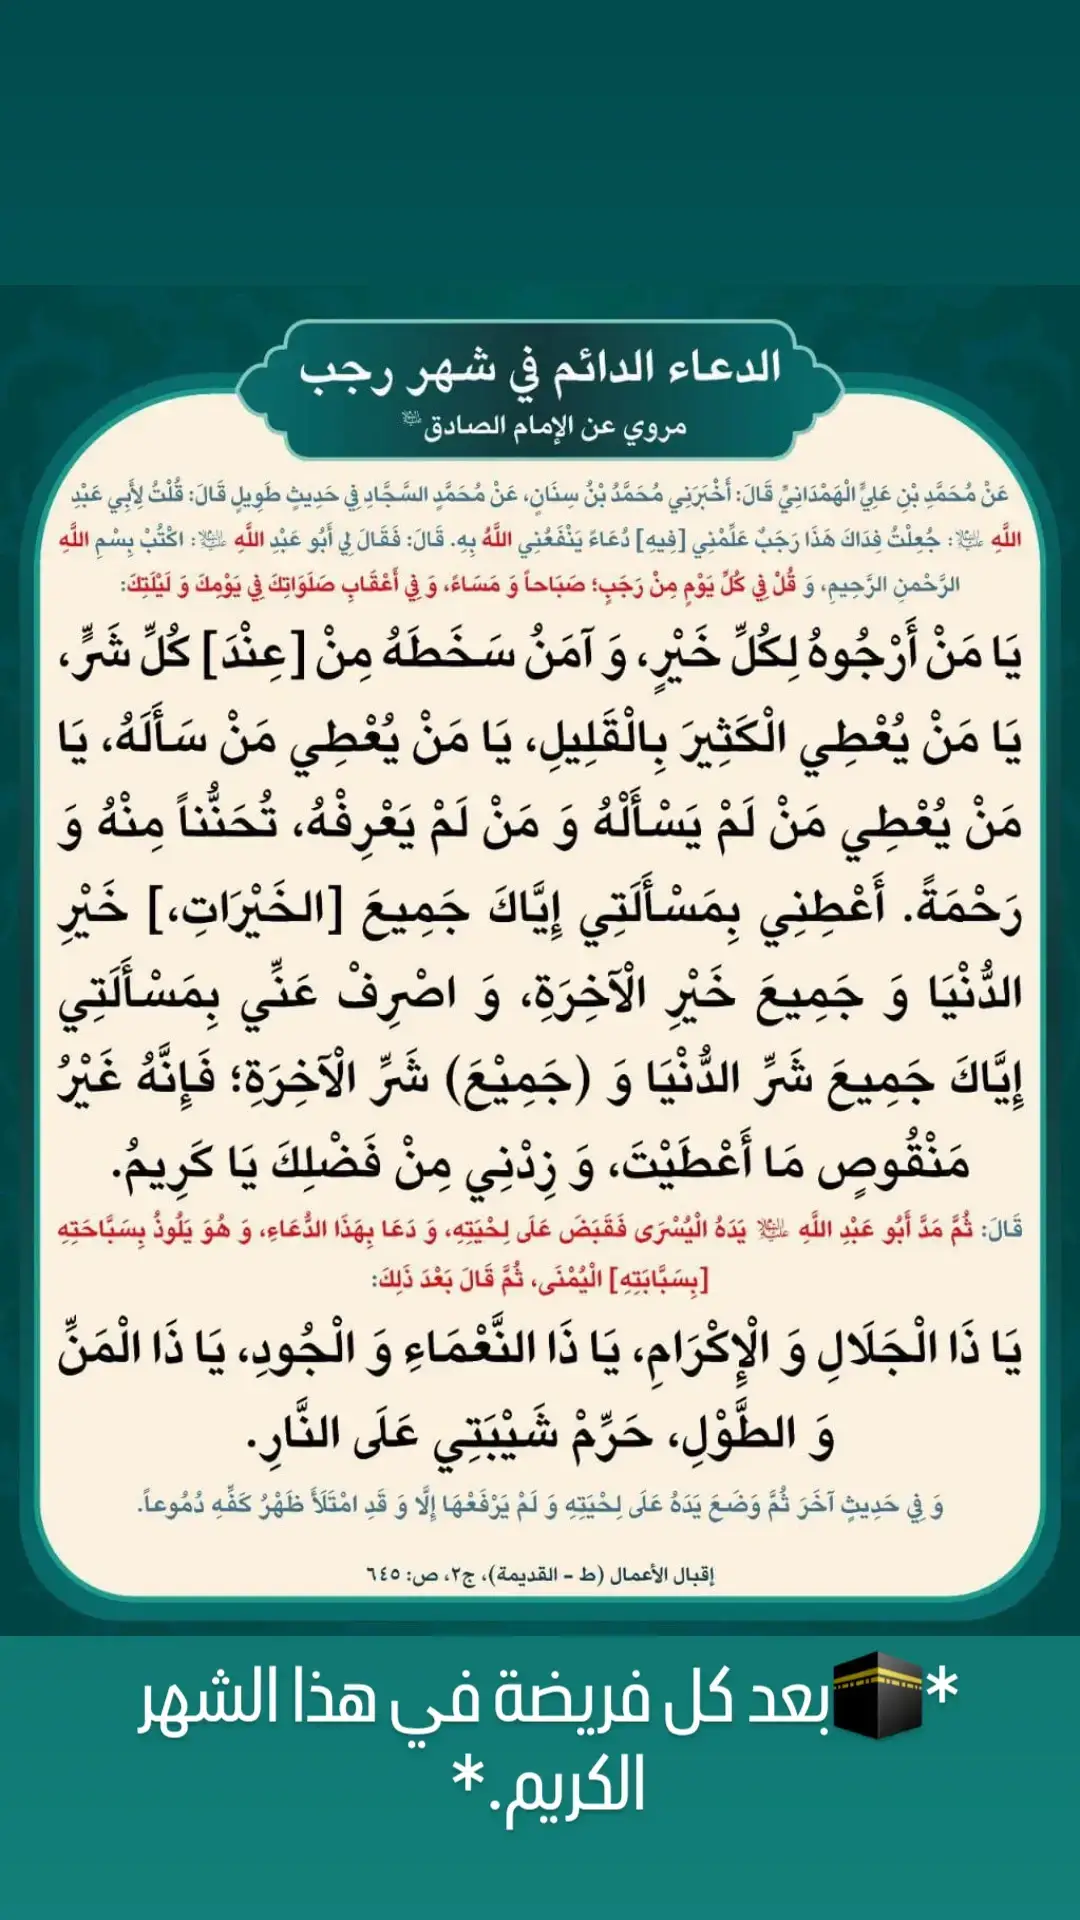 الدعاء الدائم في شهر رجب
مروي عن الإمام الصادق عليه السلام
عَنْ مُحَمَّدِ بْنِ عَلِيٍّ الْهَمْدَانِيِّ قَالَ: أَخْبَرَنِي مُحَمَّدُ بْنُ سِنَانٍ، عَنْ مُحَمَّدٍ السَّجَّادِ فِي حَدِيثٍ طَوِيلٍ قَالَ: قُلْتُ لِأَبِي عَبْدِ
اللَّهِ عليه السلام: جُعِلْتُ فِدَاكَ هَذَا رَجَبٌ عَلِّمْنِي [فِيهِ] دُعَاءً يَنْفَعُنِي اللَّهُ بِهِ. قَالَ: فَقَالَ لِي أَبُو عَبْدِ اللَّهِ عليه السلام: اكْتُبْ بِسْمِ اللَّهِ
الرَّحْمنِ الرَّحِيمِ، وَ قُلْ فِي كُلِّ يَوْمٍ مِنْ رَجَبٍ؛ صَبَاحاً وَ مَسَاءً، وَ فِي أَعْقَابِ صَلَوَاتِكَ فِي يَوْمِكَ وَ لَيْلَتِكَ:
يَا مَنْ أَرْجُوهُ لِكُلِّ خَيْرٍ، وَ آمَنُ سَخَطَهُ مِنْ [عِنْدَ] كُلِّ شَرٍّ،
يَا مَنْ يُعْطِي الْكَثِيرَ بِالْقَلِيلِ، يَا مَنْ يُعْطِي مَنْ سَأَلَهُ، يَا
مَنْ يُعْطِي مَنْ لَمْ يَسْأَلْهُ وَ مَنْ لَمْ يَعْرِفْهُ، تُحَنُّناً مِنْهُ وَ
رَحْمَةً. أَعْطِنِي بِمَسْأَلَتِي إِيَّاكَ جَمِيعَ [الخَيْرَاتِ،] خَيْرِ
الدُّنْيَا وَ جَمِيعَ خَيْرِ الْآخِرَةِ، وَ اصْرِفْ عَنِّي بِمَسْأَلَتِي
إِيَّاكَ جَمِيعَ شَرِّ الدُّنْيَا وَ (جَمِيْعَ) شَرِّ الْآخِرَةِ؛ فَإِنَّهُ غَيْرُ
مَنْقُوصٍ مَا أَعْطَيْتَ، وَ زِدْنِي مِنْ فَضْلِكَ يَا كَرِيمُ.
قَالَ: ثُمَّ مَدَّ أَبُو عَبْدِ اللَّهِ عليه السلام يَدَهُ الْيُسْرَى فَقَبَضَ عَلَى لِحْيَتِهِ، وَ دَعَا بِهَذَا الدُّعَاءِ، وَ هُوَ يَلُوذُ بِسَبَّاحَتِهِ
[بِسَبَّابَتِهِ] الْيُمْنَى، ثُمَّ قَالَ بَعْدَ ذَلِكَ:
يَا ذَا الْجَلَالِ وَ الْإِكْرَامِ، يَا ذَا النَّعْمَاءِ وَ الْجُودِ، يَا ذَا الْمَنِّ
وَ الطَّوْلِ، حَرِّمْ شَيْبَتِي عَلَى النَّارِ.
وَ فِي حَدِيثٍ آخَرَ ثُمَّ وَضَعَ يَدَهُ عَلَى لِحْيَتِهِ وَ لَمْ يَرْفَعْهَا إِلَّا وَ قَدِ امْتَلَأَ ظَهْرُ كَفِّهِ دُمُوعاً.
إقبال الأعمال (ط - القديمة)، ج٢، ص: ٦٤٥
*🕋بعد كل فريضة في هذا الشهر
الكريم.*